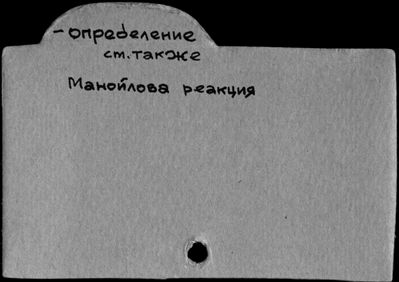 -определение
см. также
Манойлова реакция